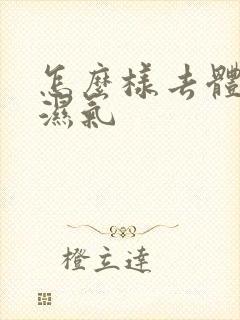 怎麼樣去體
濕氣
橙立達